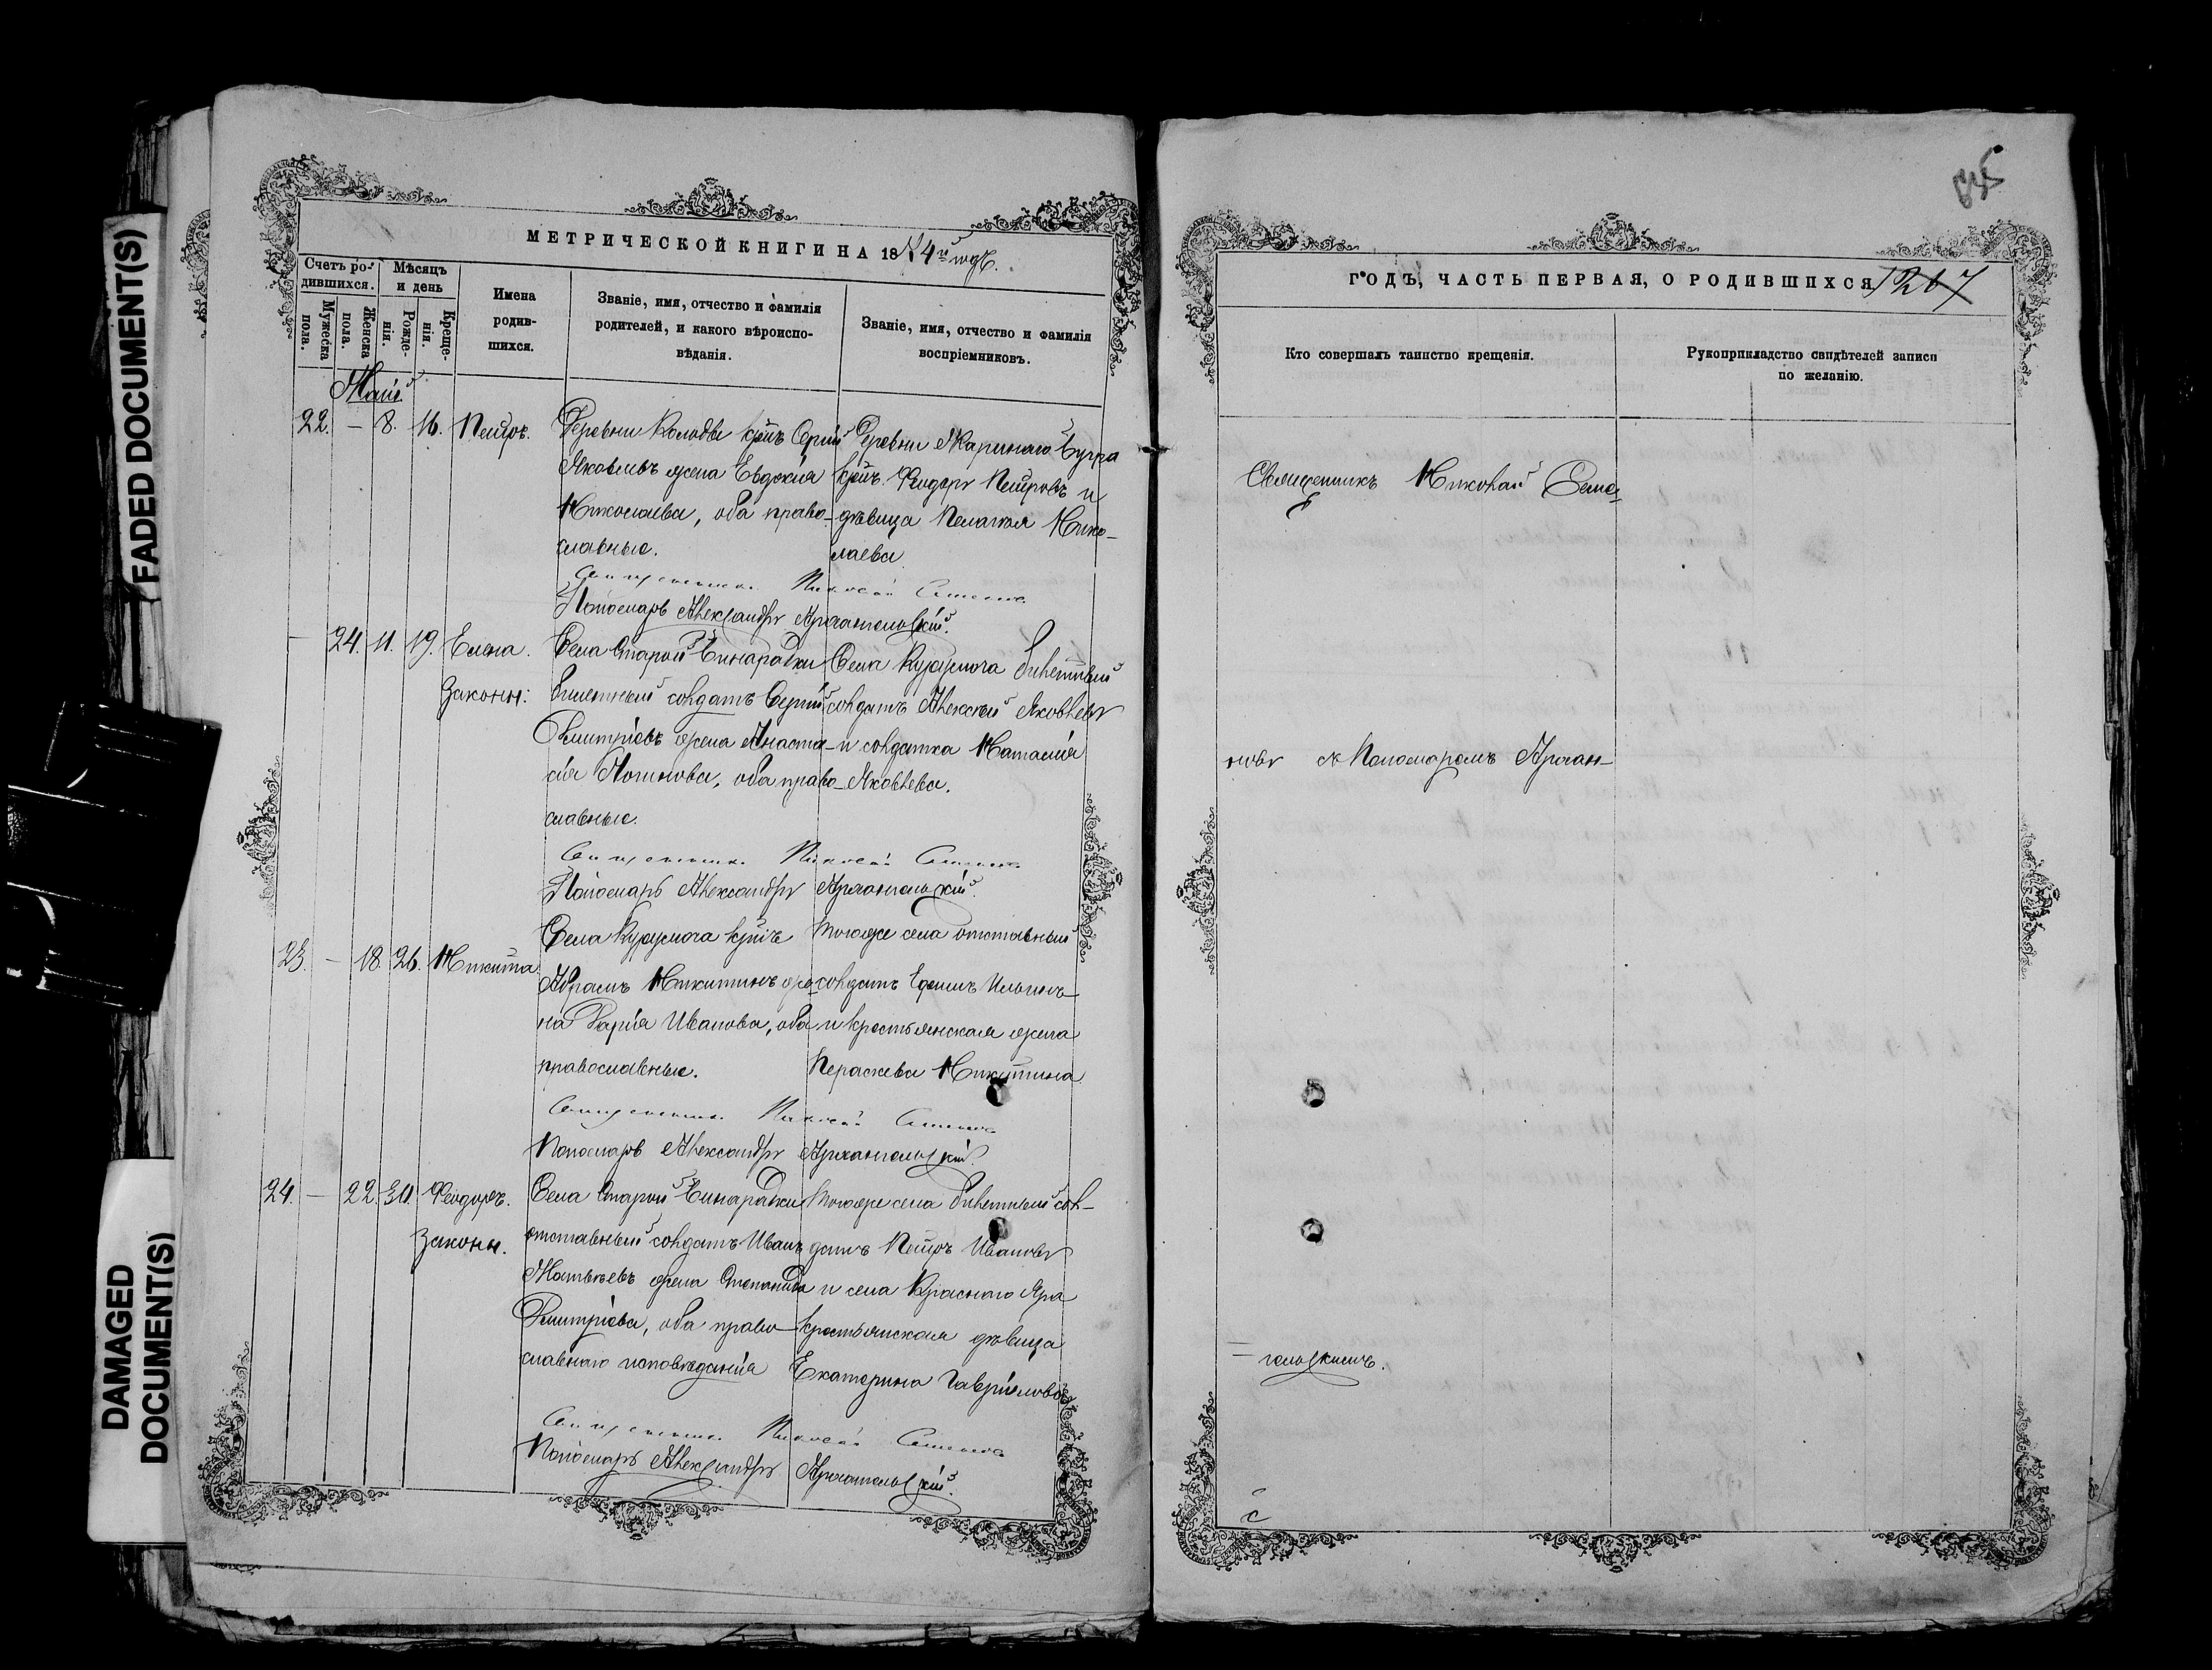 FADED DOCUMENT(S)
DAMAGED
DOCUMENT(S)
МЕТРИЧЕСКОЙ КНИГИ НА 1874й годъ.
Счетъ ро-
дившихся.
Мужеска
пола.
Женска
пола.
Мѣсяцъ
и день
Рожде-
нія.
Креще-
нія.
Имена
родив-
шихся.
Званіе, имя, отчество и фамилія
родителей, и какого вѣроиспо-
вѣданія.
Званіе, имя, отчество и фамилія
воспріемниковъ.
Май
22. — 8. 16. Петръ.
Деревни Колодѣ крнъ Сергій
Яковлевъ жена Евдокія
Николаева, оба право-
славные.
Деревни Бугра
крнъ Феодоръ Петровъ и
дѣвица Пелагея Нико-
лаева
Священникъ Николай Семеновъ
Пономарь Александръ Архангельскій.
— 24. 11. 19. Елена.
законн:
Села Старой Бинарадки
билетный солдатъ Сергій
Димитріевъ жена Анаста-
сія Логинова, оба право-
славные.
Села Курумоча билетный
солдатъ Алексей Яковлевъ
и солдатка Наталія
Яковлева.
Священникъ Николай Семеновъ
Пономарь Александръ Архангельскій.
23. — 18. 26. Никита
Села Курумоча крнъ
Абрамъ Никитинъ же-
на Дарія Иванова, оба
православные.
Тогоже села отставный
солдатъ Ефимъ Ильинъ
и крестьянская жена
Параскева Никитина
Священникъ Николай Семеновъ
Пономарь Александръ Архангельскій.
24. — 22. 30. Феодоръ.
законн.
Села Старой Бинарадки
отставный солдатъ Иванъ
Матвѣевъ жена Степанида
Димитріева, оба право-
славнаго исповѣданія
Тогоже села билетный сол-
датъ Петръ Ивановъ
и села Краснаго Яра
крестьянская дѣвица
Екатерина Гавріилова
Священникъ Николай Семеновъ
Пономарь Александръ Архангельскій.
ГОДЪ, ЧАСТЬ ПЕРВАЯ, О РОДИВШИХСЯ
1267
Кто совершалъ таинство крещенія.
Рукоприкладство свидѣтелей записи
по желанію.
Священникъ Николай Семе-
новъ съ Пономаремъ Архан-
гельскимъ.